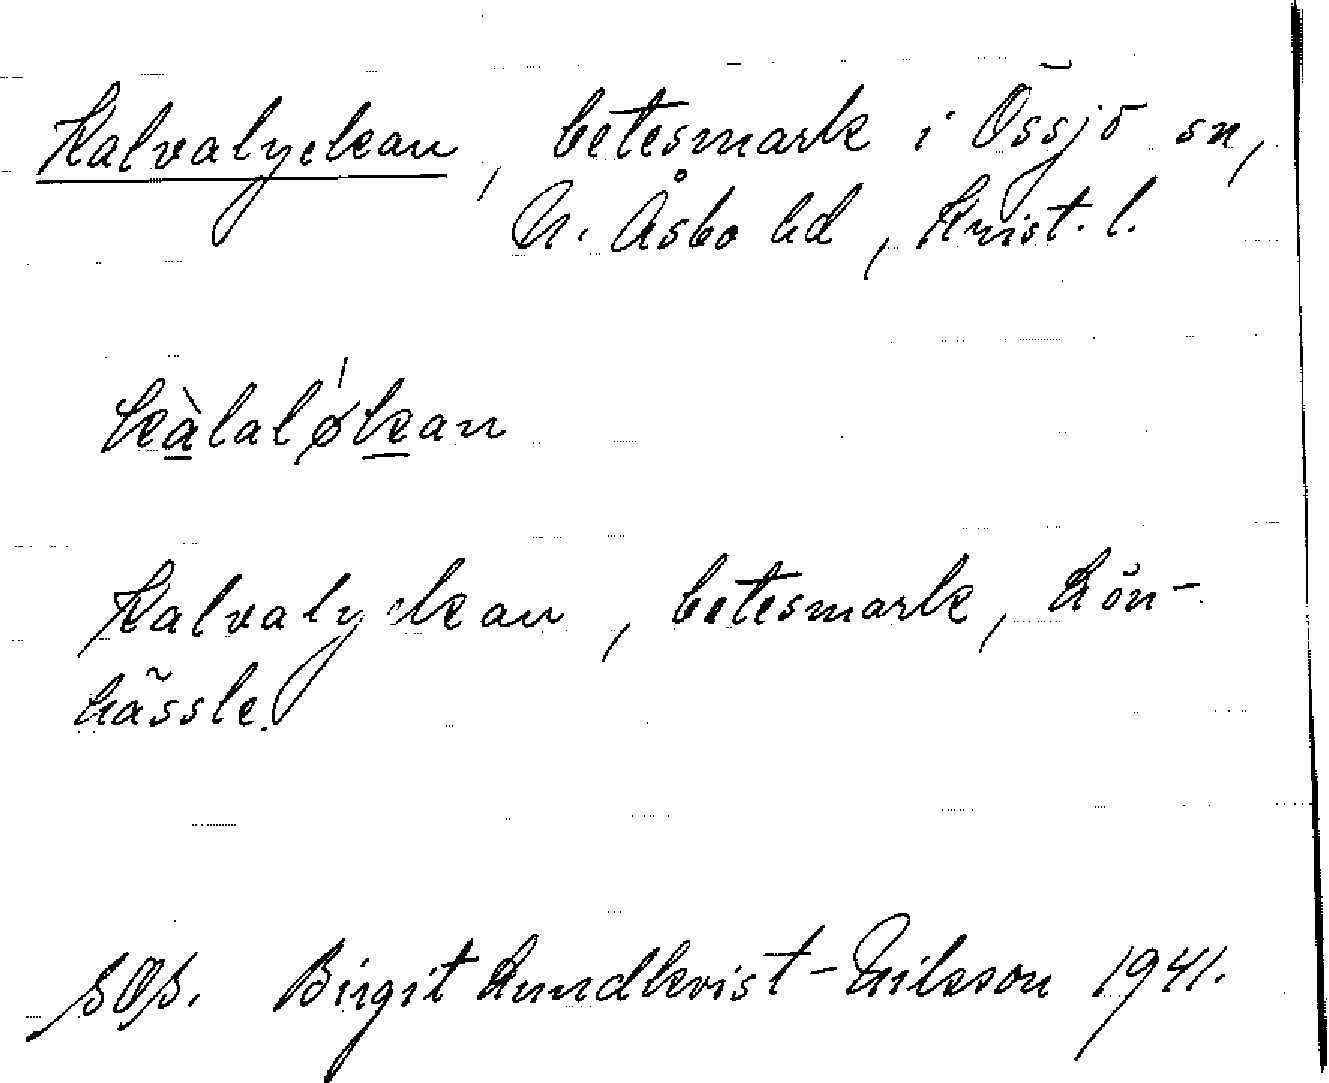 Kalvalyckan, betesmark i Össjö sn,
N. Åsbo hd, Krist. l.
kàlalø̍kan
Kalvalyckan, betesmark, Lön-
hässle.
Birgit Lundkvist-Nilsson 1941.